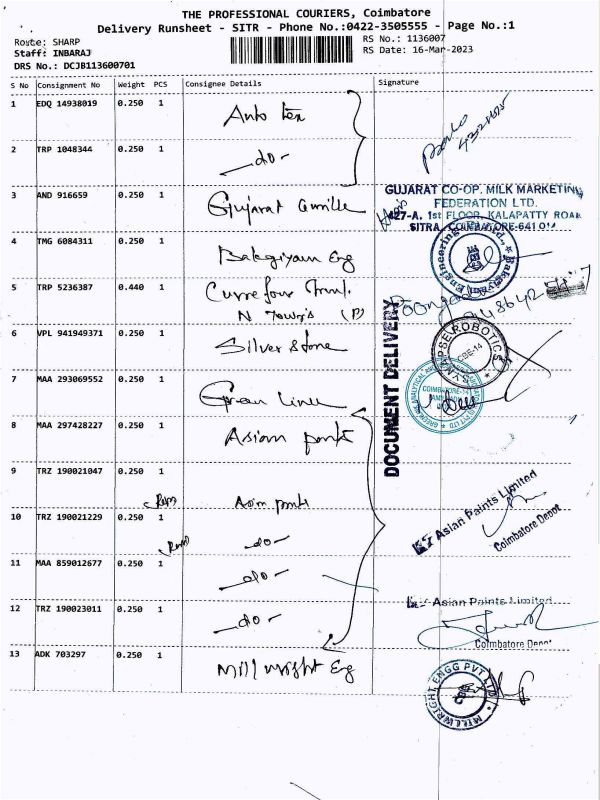 THE PROFESSIONAL COURIERS, Coimbatore
Delivery Runsheet - SITR - Phone No.:0422-3505555 - Page No.:1
Route: SHARP
RS No.: 1136007
Staff: INBARAJ
RS Date: 16-Mar-2023
DRS No.: DCJB113600701
S No Consignment No Weight PCS Consignee Details Signature
1 EDQ 14938019 0.250 1 Auto tex
2 TRP 1048344 0.250 1 -do-
3 AND 916659 0.250 1 Gujarat
GUJARAT CO-OP. MILK MARKETING
FEDERATION LTD.
427-A, 1st FLOOR, KALAPATTY ROAD
SITRA, COIMBATORE-641 014
4 TMG 6084311 0.250 1 Eng
5 TRP 5236387 0.440 1
N Towers (P)
6 VPL 941949371 0.250 1 Silver stone
DOCUMENT DELIVERY
ROBOTICS
CBE-14
7 MAA 293069552 0.250 1 Green Line
COIMBATORE-14
8 MAA 297428227 0.250 1 Asian paints
9 TRZ 190021047 0.250 1 Asian paints
Asian Paints Limited
Coimbatore Depot
10 TRZ 190021229 0.250 1 -do-
11 MAA 859012677 0.250 1 -do-
12 TRZ 190023011 0.250 1 -do-
Asian Paints Limited
Coimbatore Depot
13 ADK 703297 0.250 1 Mill wright Eg
MILLWRIGHT ENGG PVT LTD